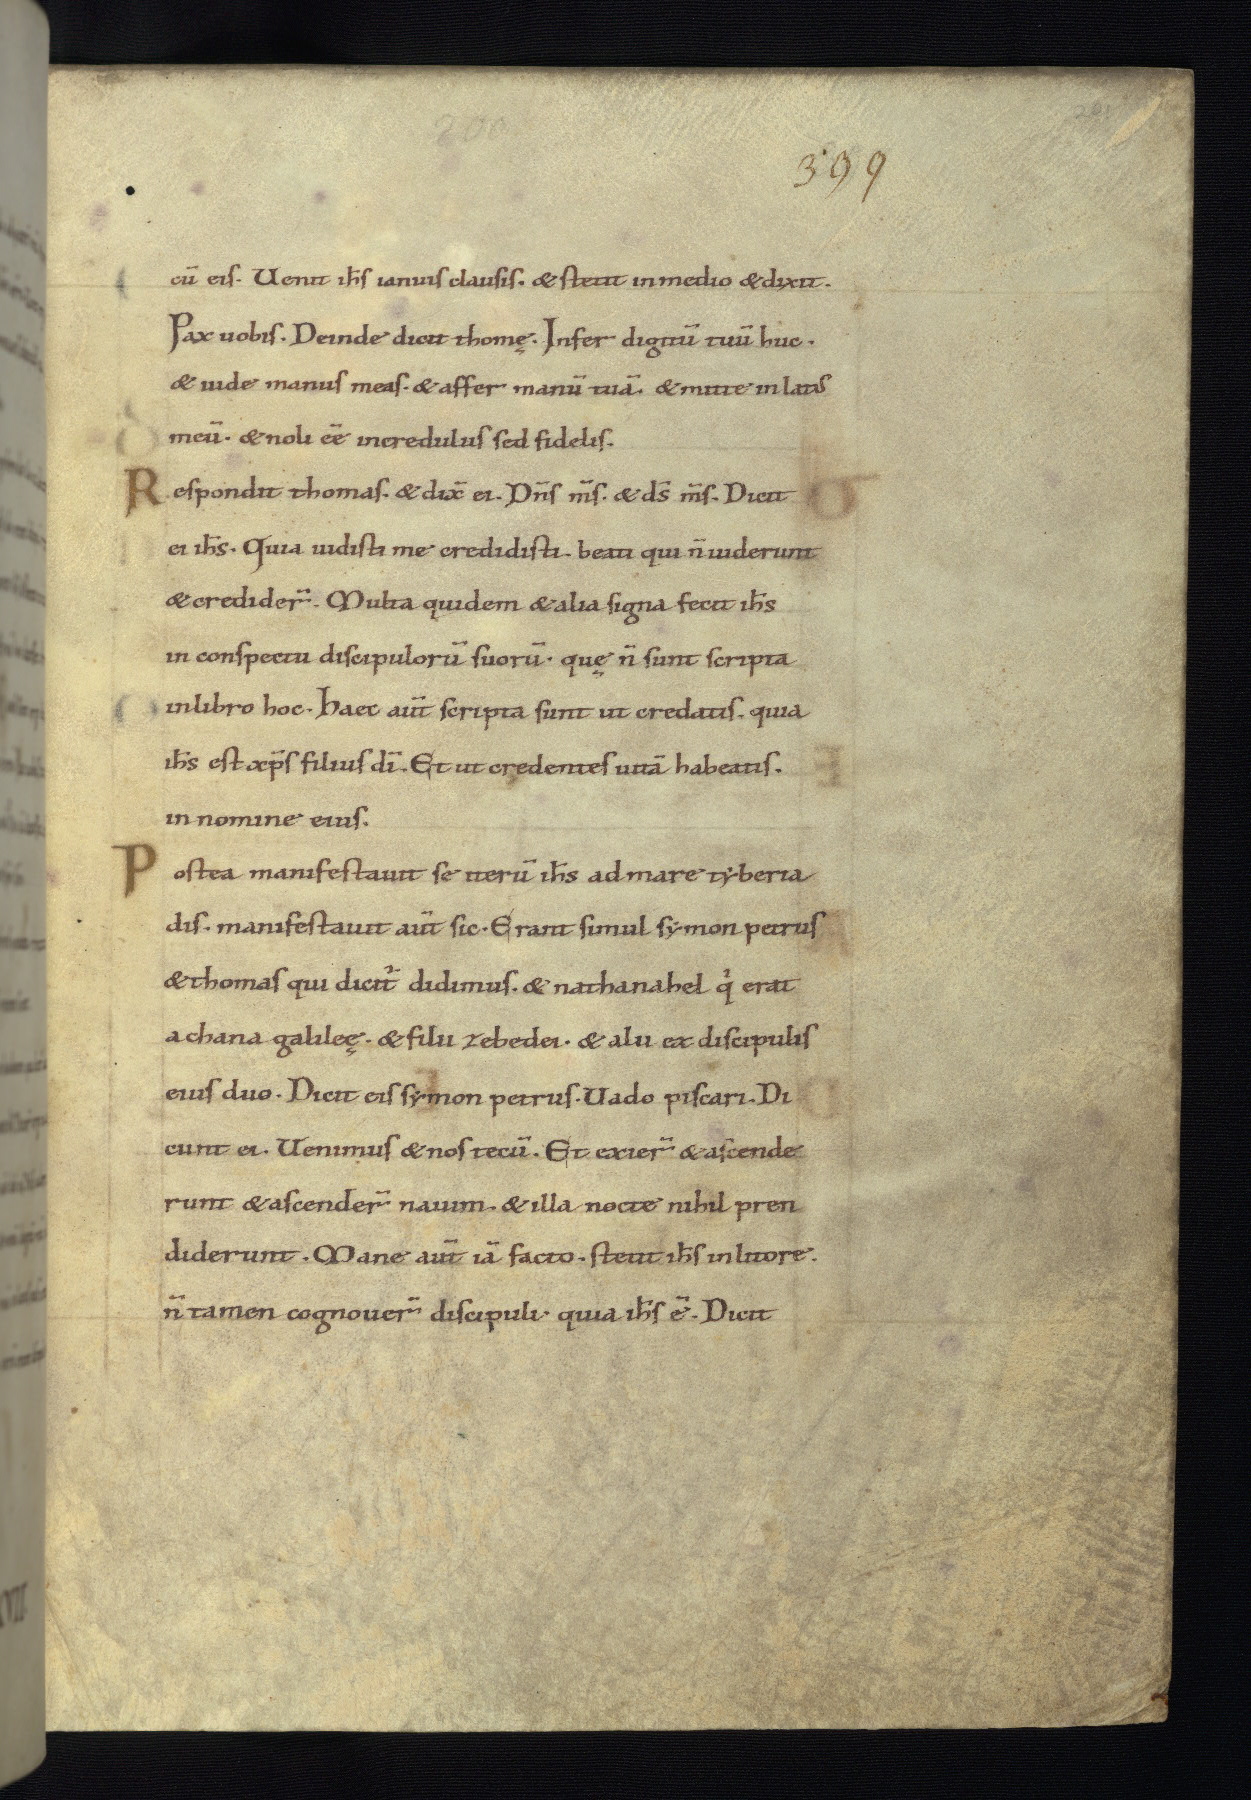 200
201
399
cū eis. Uenit ih̄s ianuis clausis. & stetit in medio & dixit.
Pax uobis. Deinde dicit thomę. Infer digitū tuū huc.
& uide manus meas. & affer manū tuā. & mitte in latus
meū. & noli eē incredulus sed fidelis.
Respondit thomas. & dix̄ ei. Dn̄s m̄s. & ds̄ m̄s. Dicit
ei ih̄s. Quia uidisti me credidisti. beati qui n̄ uiderunt
& credider̄. Multa quidem & alia signa fecit ih̄s
in conspectu discipulorū suorū. quę n̄ sunt scripta
in libro hoc. haec aūt scripta sunt ut credatis. quia
ih̄s est xp̄s filius dī. Et ut credentes uitā habeatis.
in nomine eius.
Postea manifestauit se iterū ih̄s ad mare tẏberia
dis. manifestauit aūt sic. Erant simul sẏmon petrus
& thomas qui dicit᷑ didimus. & nathanahel qͥ erat
a chana galileę. & filii zebedei. & alii ex discipulis
eius duo. Dicit eis sẏmon petrus. Uado piscari. Di
cunt ei. Uenimus & nos tecū. Et exier̄ & ascende
runt & ascender̄ nauim. & illa nocte nihil pren
diderunt. Mane aūt iā facto. stetit ih̄s in litore.
n̄ tamen cognouer̄ discipuli quia ih̄s ē. Dicit